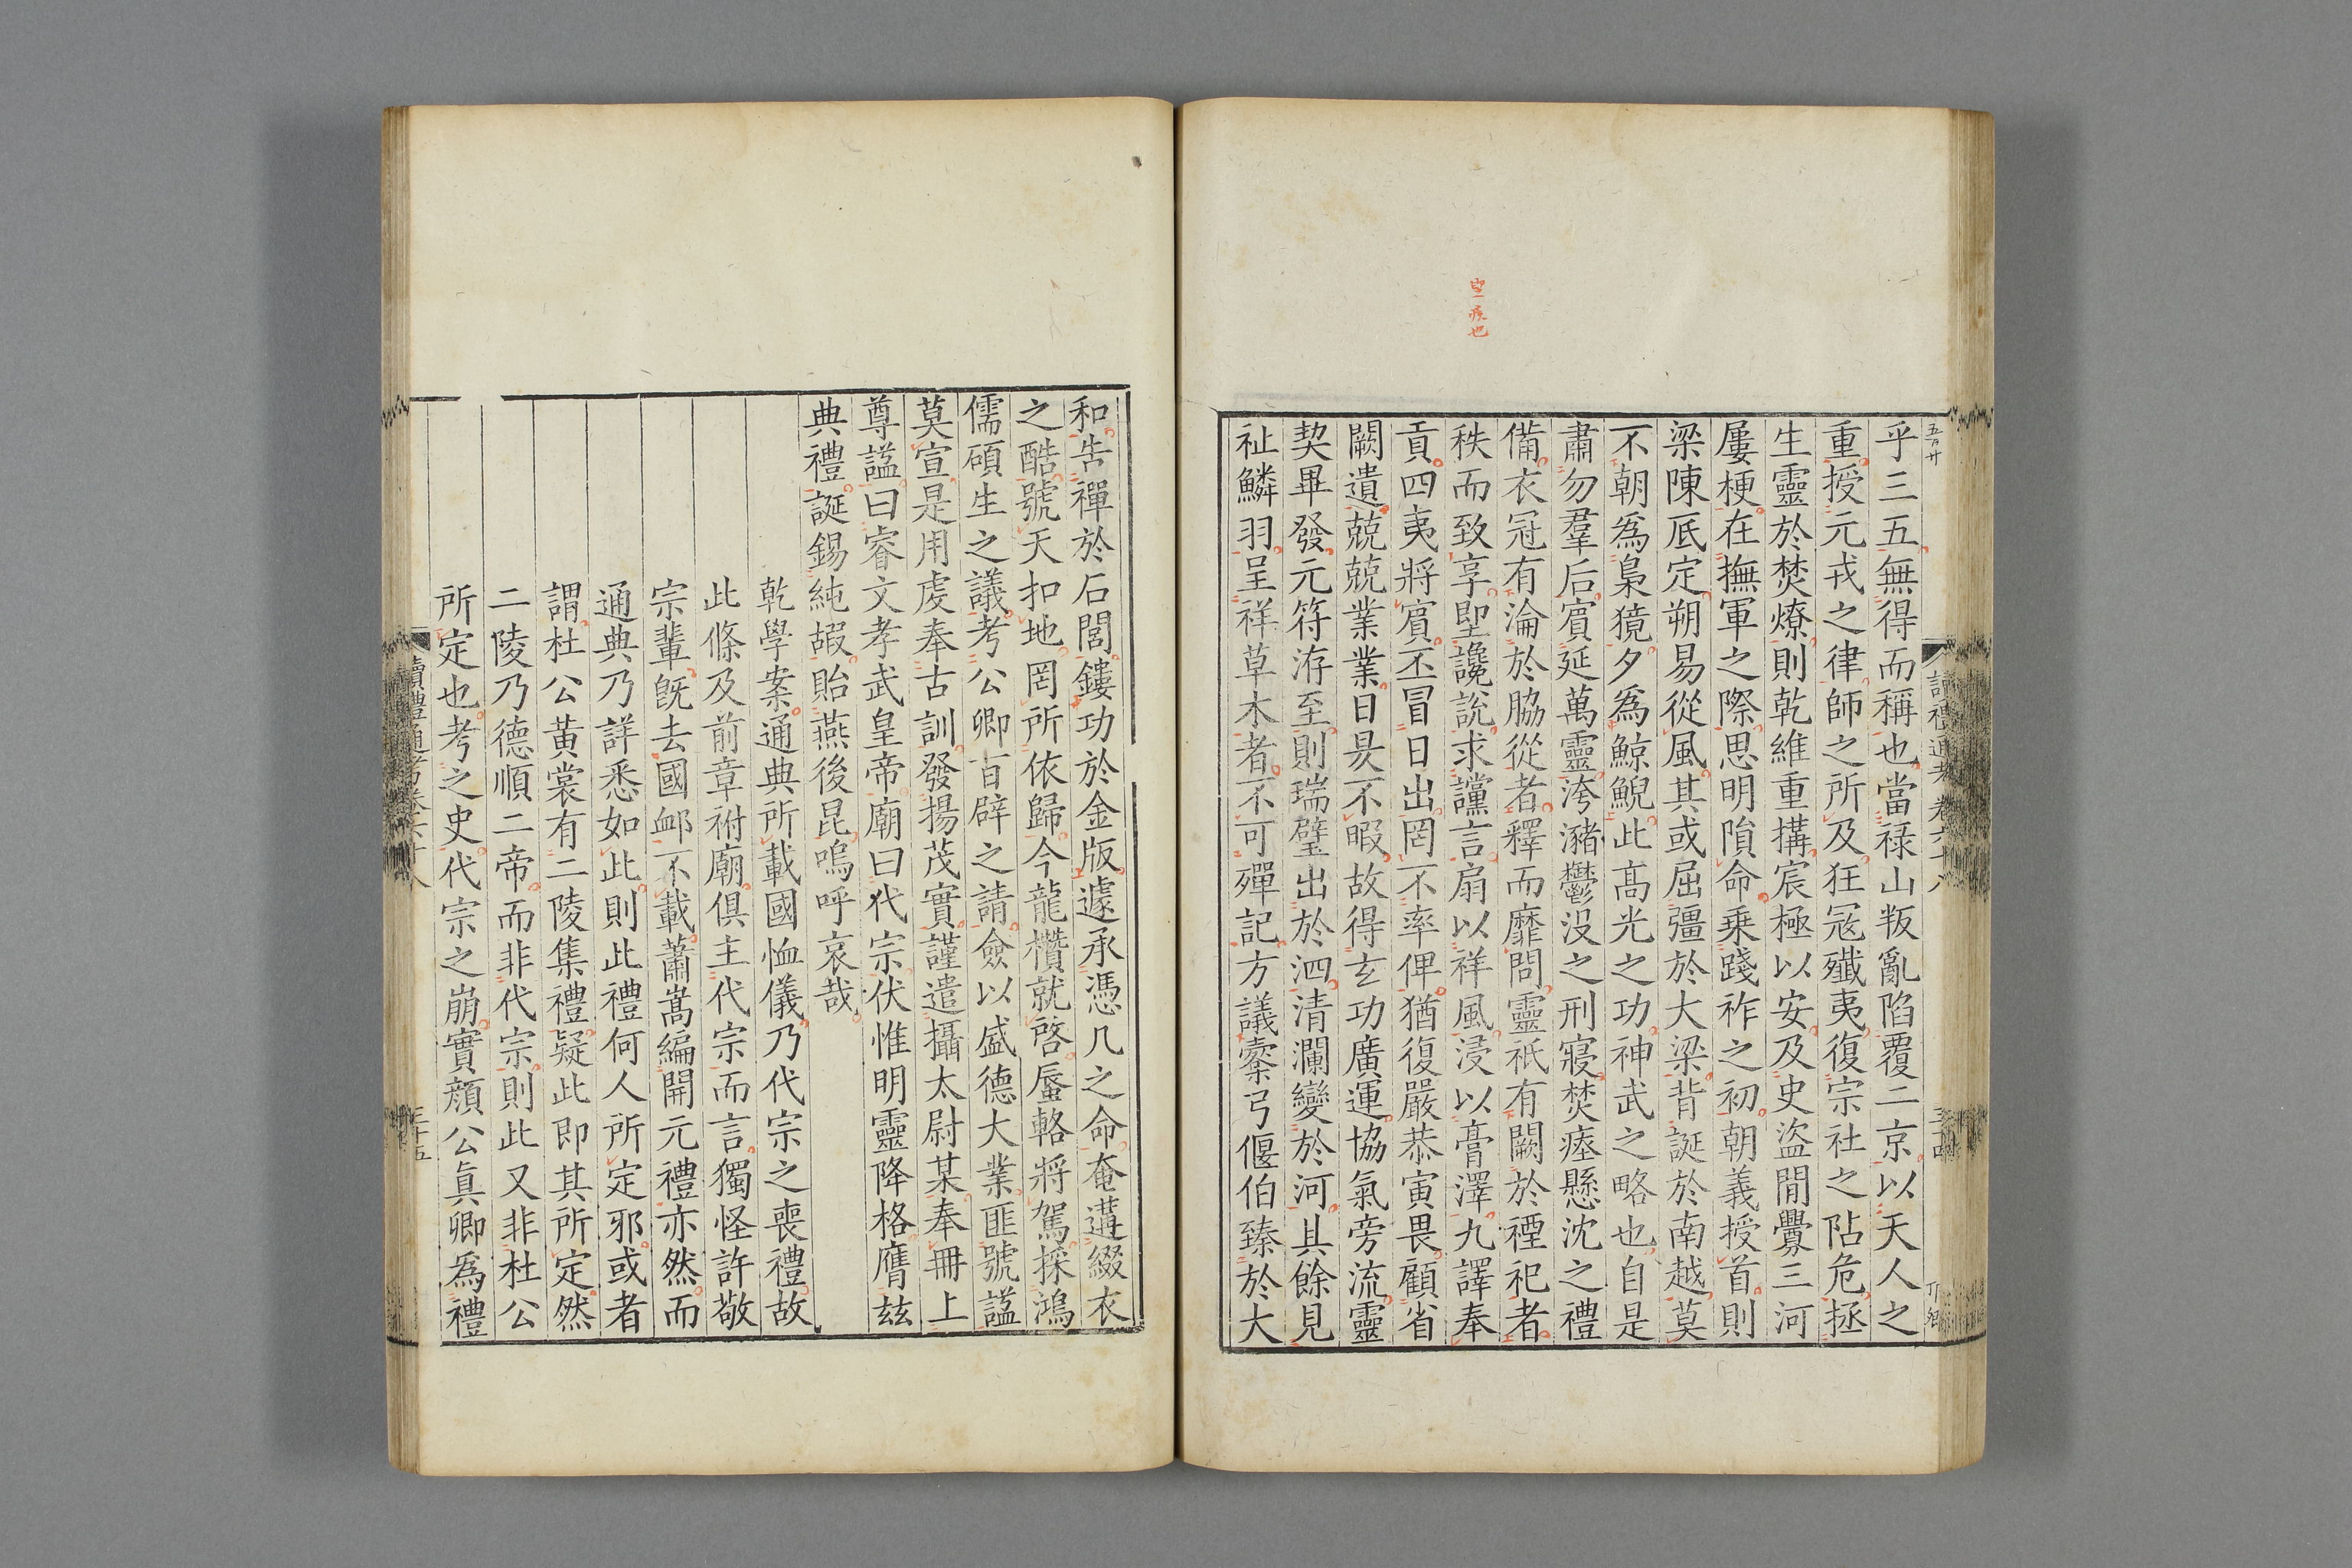 五百廿
讀禮通考卷六十八
三十四
乎三五無得而稱也當祿山叛亂陷覆二京以天人之
重授元戎之律師之所及狂冦殲夷復宗社之阽危拯
生靈於焚燎則乾維重構宸極以安及史盜閒釁三河
屢梗在撫軍之際思明隕命乗踐祚之初朝義授首則
梁陳厎定朔易從風其或屈彊於大梁背誕於南越莫
不朝爲梟獍夕爲鯨鯢此髙光之功神武之略也自是
肅勿羣后賓延萬靈洿瀦鬱没之刑寢焚瘞懸沈之禮
備衣冠有淪於脇從者釋而靡問靈祇有闕於禋祀者
秩而致享堲讒說求讜言扇以祥風浸以膏澤九譯奉
貢四夷將賓丕冒日出罔不率俾猶復嚴恭寅畏顧省
闕遺兢兢業業日昃不暇故得玄功廣運協氣旁流靈
契畢發元符洊至則瑞璧出於泗清瀾變於河其餘見
祉鱗羽呈祥草木者不可殫記方議櫜弓偃伯臻於大
堲疾也
和告禪於石閭鏤功於金版遽承憑几之命奄遘綴衣
之酷號天扣地罔所依歸今龍欑就啓蜃輅將駕採鴻
儒碩生之議考公卿百辟之請僉以盛德大業匪號諡
莫宣是用虔奉古訓發揚茂實謹遣攝太尉某奉冊上
尊諡曰睿文孝武皇帝廟曰代宗伏惟明靈降格膺玆
典禮誕錫純嘏貽燕後昆嗚呼哀哉
乾學案通典所載國恤儀乃代宗之喪禮故
此條及前章祔廟俱主代宗而言獨怪許敬
宗輩旣去國䘏不載蕭嵩編開元禮亦然而
通典乃詳悉如此則此禮何人所定邪或者
謂杜公黃裳有二陵集禮疑此即其所定然
二陵乃德順二帝而非代宗則此又非杜公
所定也考之史代宗之崩實顔公眞卿爲禮
讀禮通考卷六十八
三十五